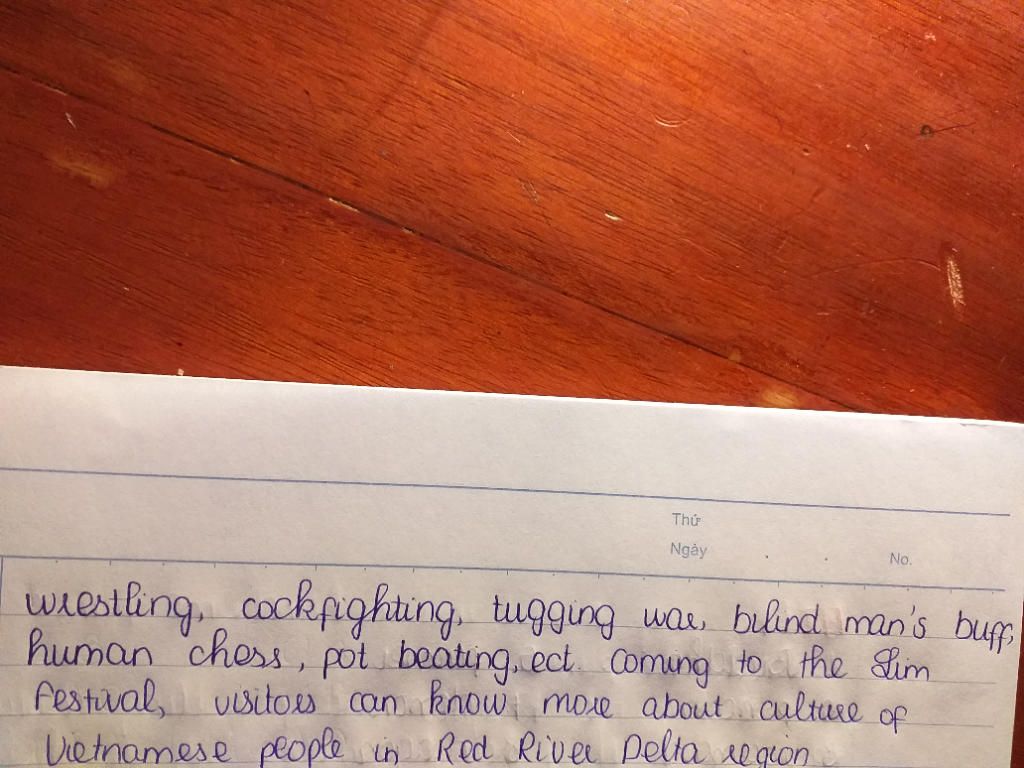 Thứ
Ngày
No.
wrestling, cockfighting, tugging war, bilind man's buff,
human chess, pot beating, ect. Coming to the Slim
Festival, visitors can know more about culture of
Vietnamese people in Red River Delta region